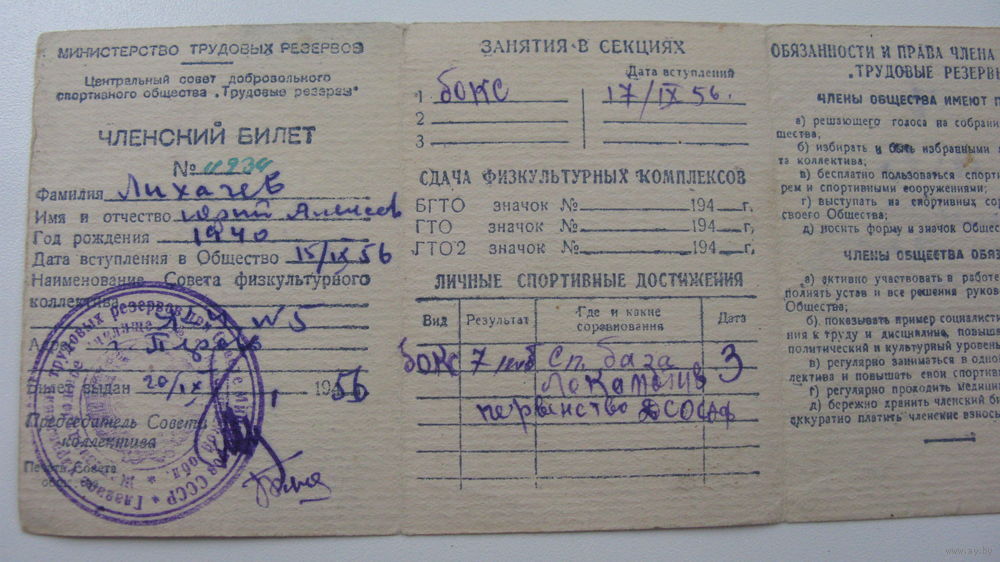 МИНИСТЕРСТВО ТРУДОВЫХ РЕЗЕРВОВ
Центральный совет добровольного
спортивного общества „Трудовые резервы"
ЧЛЕНСКИЙ БИЛЕТ
№ 11234
Фамилия Лихачев
Имя и отчество Юрий Алексеев
Год рождения 1940
Дата вступления в Общество 15/IX 56
Наименование Совета физкультурного
коллектива
№5
Билет выдан 20/IX 1956
Председатель Совета
коллектива
Печать Совета
ЗАНЯТИЯ В СЕКЦИЯХ
Дата вступлений
1 бокс 17/IX 56.
2
3
СДАЧА ФИЗКУЛЬТУРНЫХ КОМПЛЕКСОВ
БГТО значок № 194 г.
ГТО значок № 194 г.
ГТО 2 значок № 194 г.
ЛИЧНЫЕ СПОРТИВНЫЕ ДОСТИЖЕНИЯ
Вид Результат Где и какие соравнования Дата
бокс 7 поб Сп. база 3
Локамотив
первенство ДСОСАФ
ОБЯЗАННОСТИ И ПРАВА ЧЛЕНА
„ТРУДОВЫЕ РЕЗЕРВ
ЧЛЕНЫ ОБЩЕСТВА ИМЕЮТ П
а) решающего голоса на собрани
щества;
б) избирать и быть избранными
та коллектива;
в) бесплатно пользоваться спорти
рем и спортивными сооружениями;
г) выступать на спортивных сор
своего Общества;
д) носить форму и значок Общес
ЧЛЕНЫ ОБЩЕСТВА ОБЯЗ
а) активно участвовать в работе
полнять устав и все решения руков
Общества;
б) показывать пример социалисти
ния к труду и дисциплине, повыша
политический и культурный уровень
в) регулярно заниматься в одной
лектива и повышать свои спортивн
г) регулярно проходить медицин
д) бережно хранить членский би
аккуратно платить членские взносы
www.ay.by